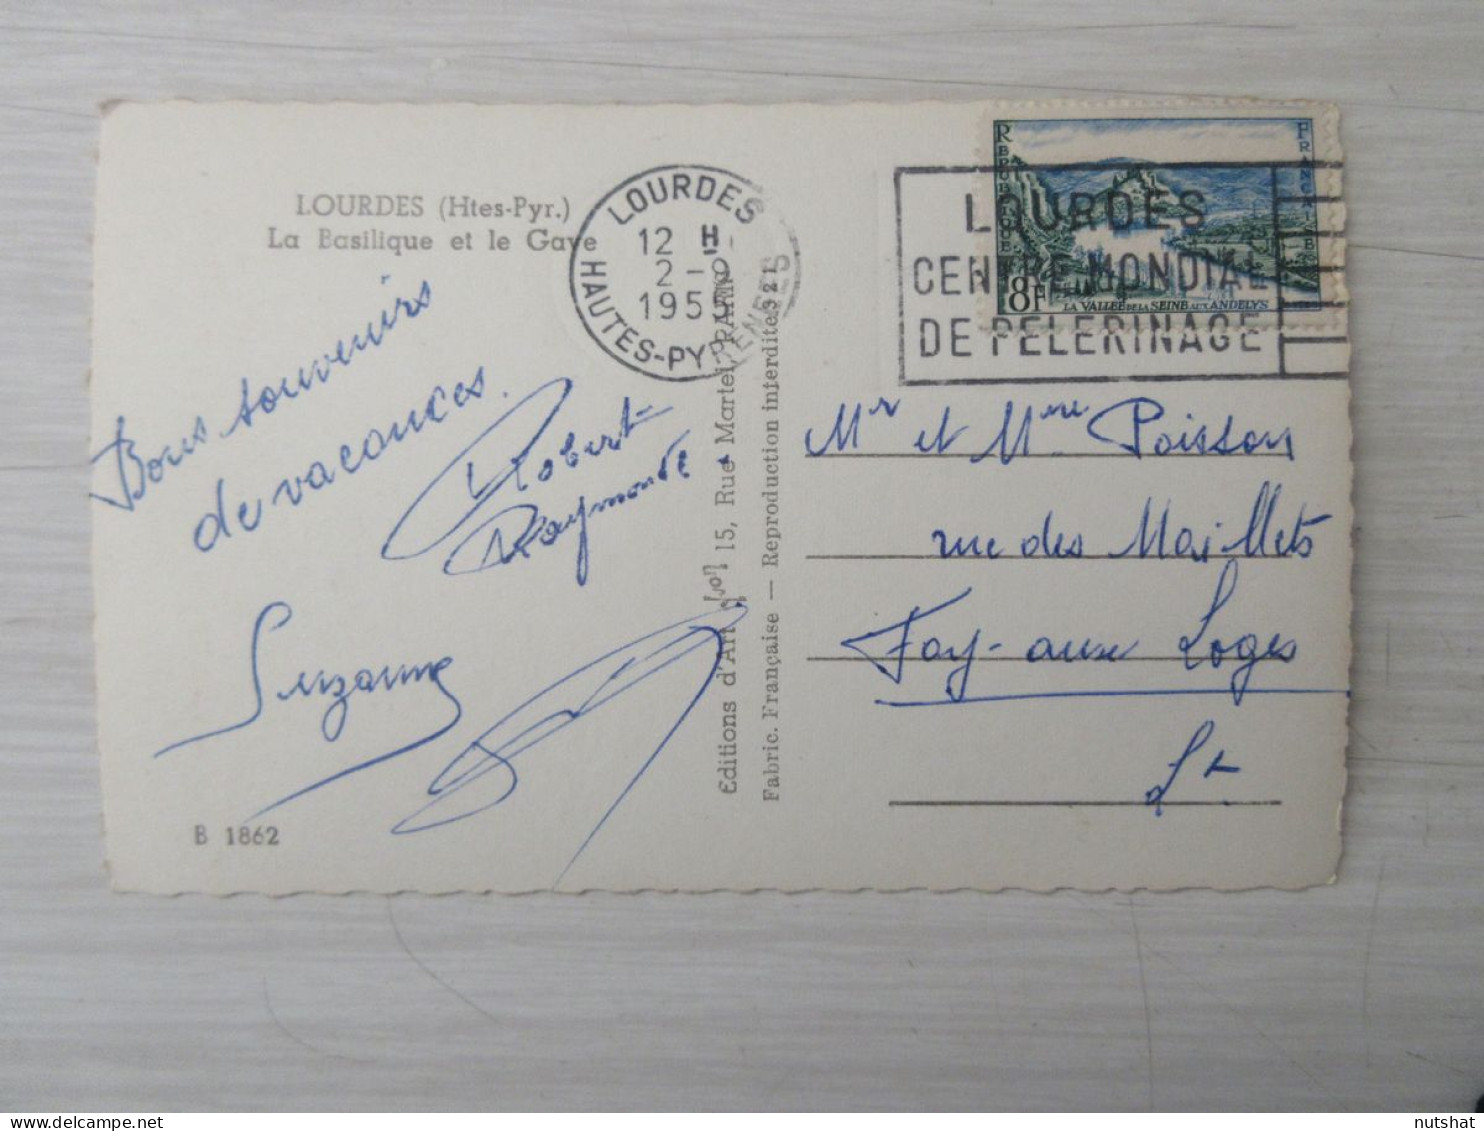 LOURDES (Htes-Pyr.)
La Basilique et le Gave
Bons souvenirs
de vacances.
Robert
Raymonde
Suzanne
B 1862
LOURDES
12 H
2 -
1955
HAUTES-PYRENEES
Editions d'Art 15, Rue Martel, PARIS
Fabric. Française — Reproduction interdite 321
REPUBLIQUE FRANÇAISE
8F
LA VALLEE DE LA SEINE AUX ANDELYS
LOURDES
CENTRE MONDIAL
DE PELERINAGE
Mr et Mme Poisson
rue des Maillets
Fay-aux Loges
Lt
nutshat